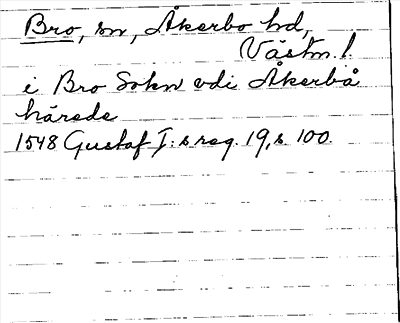 Bro, sn, Åkerbo hd,
Västm. l.
i Bro Sokn vdi Åkerbå
härede
1548 Gustaf I:s reg. 19, s. 100.